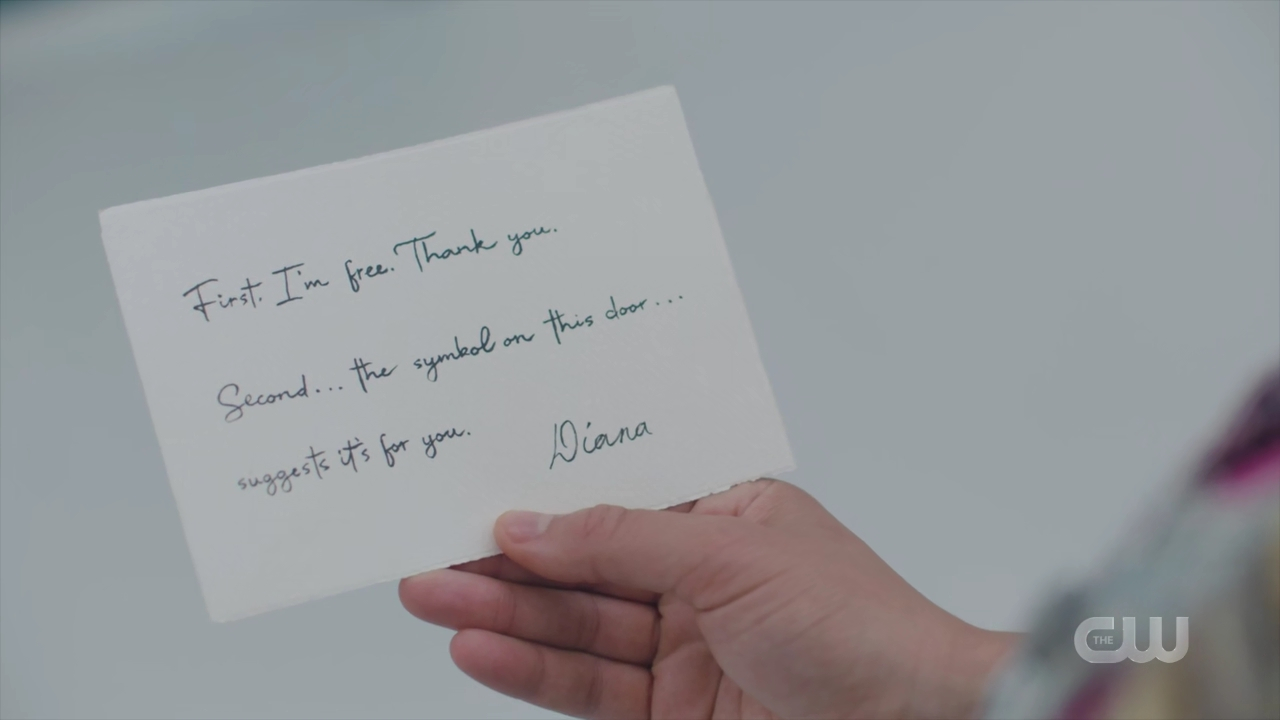 First, I'm free. Thank you.
Second... the symbol on this door...
suggests it's for you.
Diana
THE CW